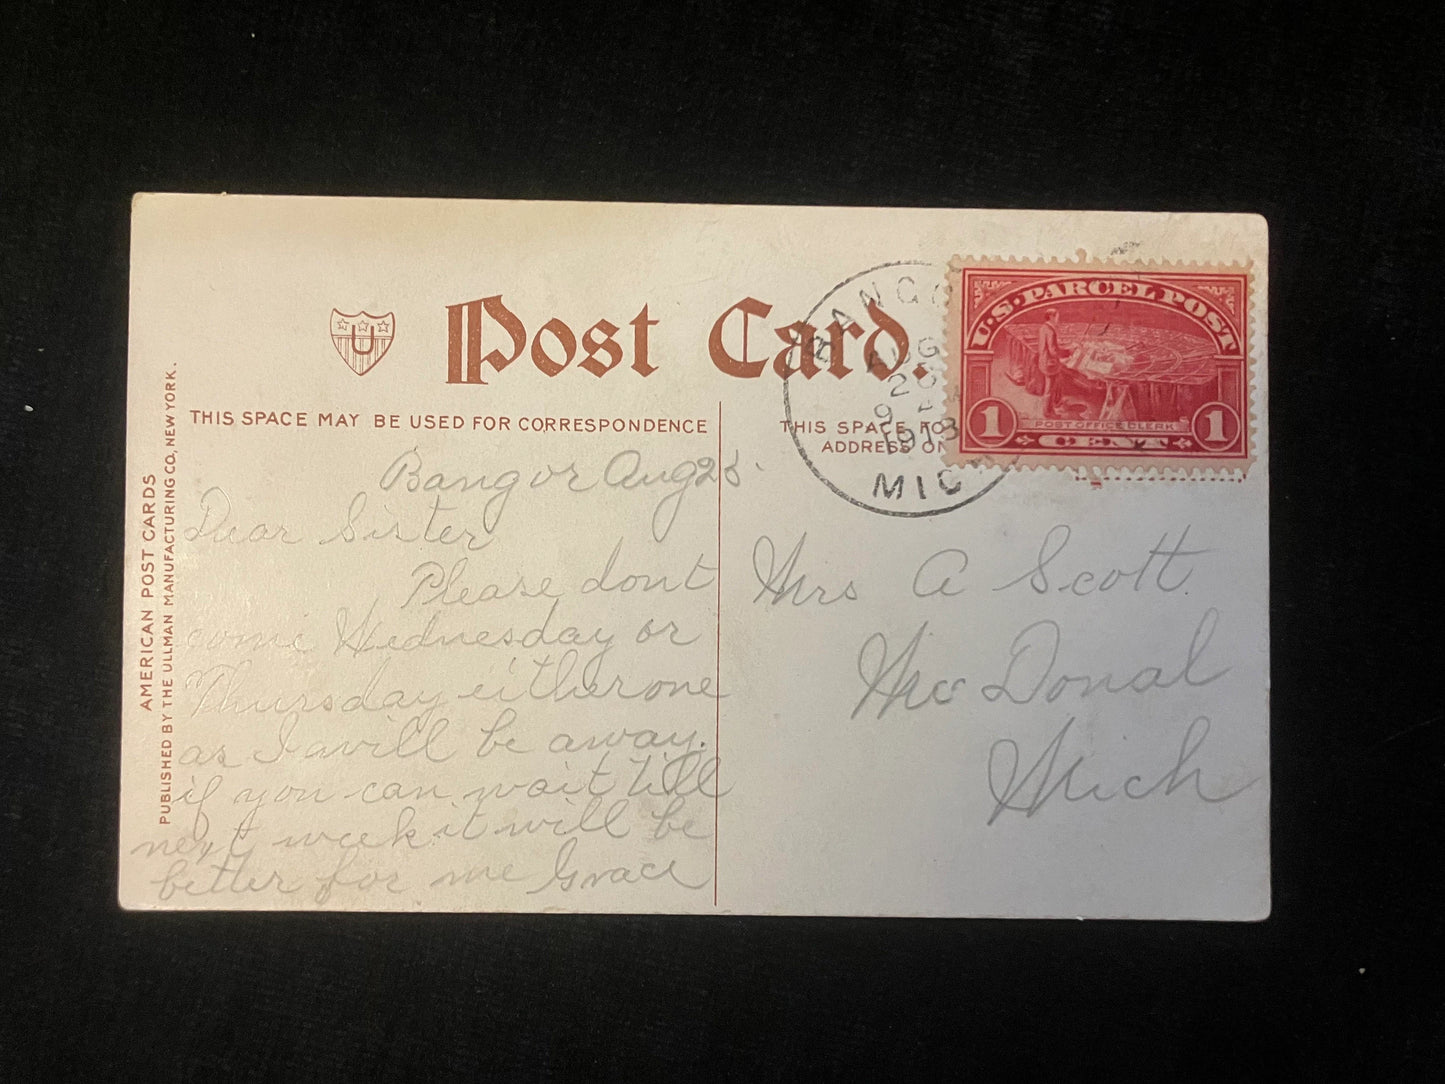 U
Post Card.
THIS SPACE MAY BE USED FOR CORRESPONDENCE
THIS SPACE FO
ADDRESS ON
AMERICAN POST CARDS
PUBLISHED BY THE ULLMAN MANUFACTURING CO, NEW YORK.
BANGO
AUG
9 A
1913
MICH
U.S. PARCEL POST
POST OFFICE CLERK
1 CENT 1
Bangor Aug
Dear Sister
Please dont
come Wednesday or
Thursday either one
as I will be away.
if you can wait till
next week it will be
better for me Grace
Mrs A Scott
Mc Donal
Mich